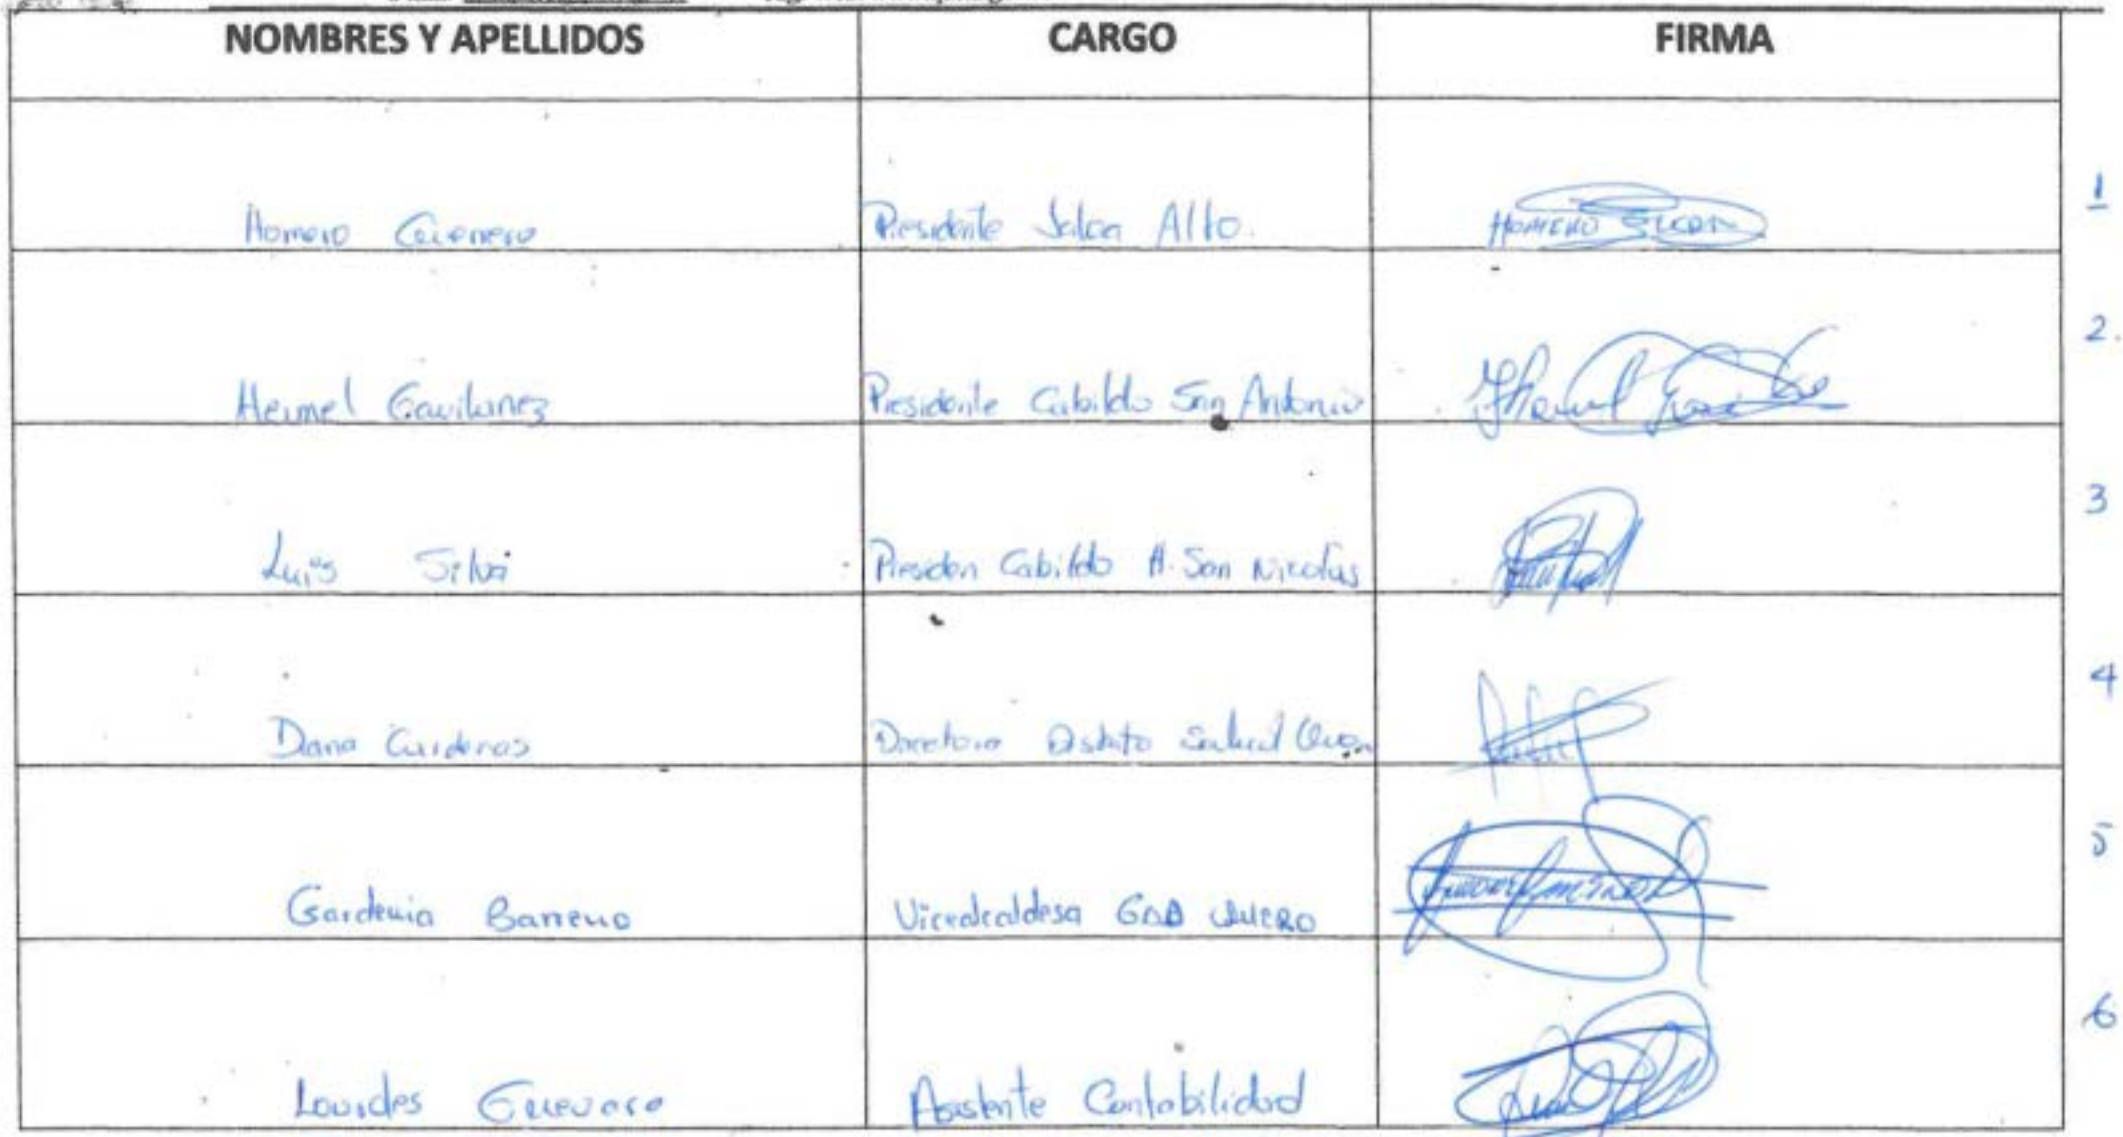 NOMBRES Y APELLIDOS CARGO FIRMA
Homero Presidente Jaloa Alto. HOMERO 1
Hermel Gavilanez Presidente Cabildo San Antonio 2.
Luis Silva Presiden Cabildo H. San Nicolas 3
Diana Cardenas Directora Distrito Salud 4
Gardenia Barreno Vicealcaldesa GAD QUERO 5
Lourdes Guevara Asistente Contabilidad 6